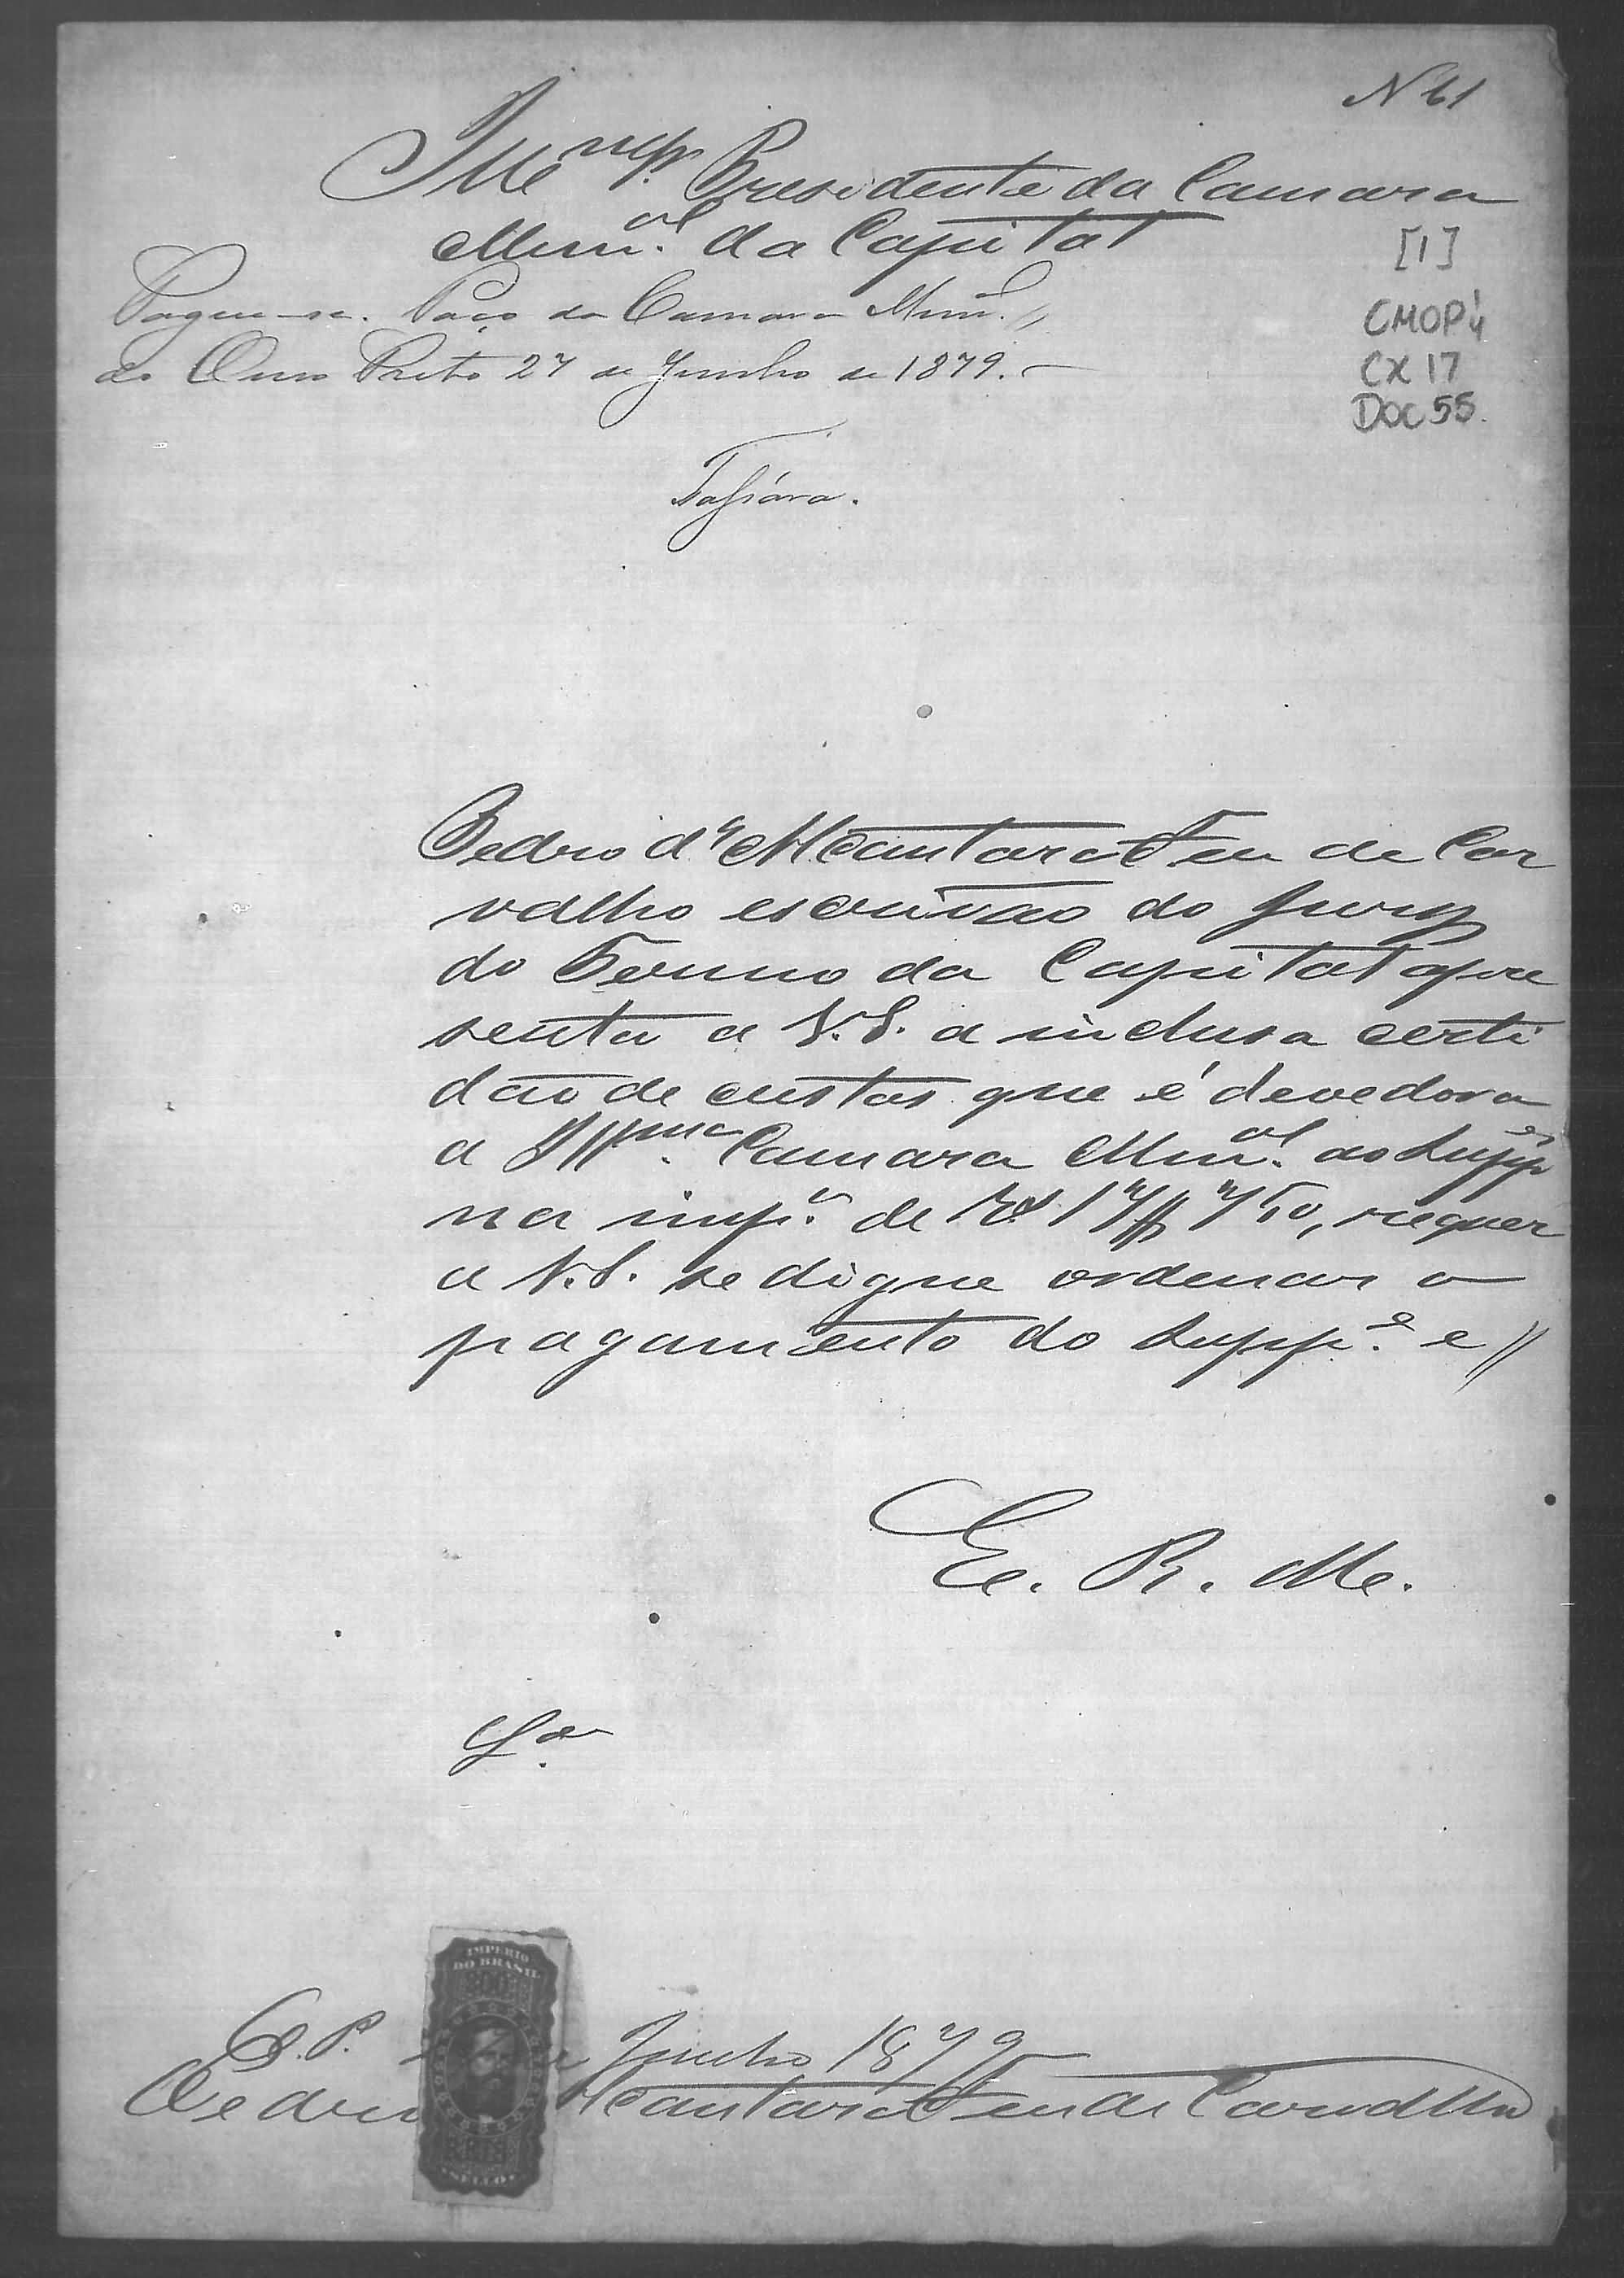 N 61
Illmo Sr. Presidente da Camara
Munal. da Capital
[1]
CMOP 4
CX 17
DOC 55.
Pague-se. Paço da Camara Munl. //
do Ouro Preto 27 de Junho de 1879. –
Pedro d'Alcantara Feu de Car
valho escrivão do Jury
do Termo da Capital apre
senta a V.S. a inclusa certi
dão de custas que é devedora
a Illma. Camara Munal. ao Suppe
na impa. de Rs 17$750, requer
a V.S. se digne ordenar o
pagamento do Suppe. e //
E. R. Me.
IMPERIO
DO BRASIL
200
REIS
SELLO
O. P. Junho 1879
Pedro Alcantara Feu de Carvalho